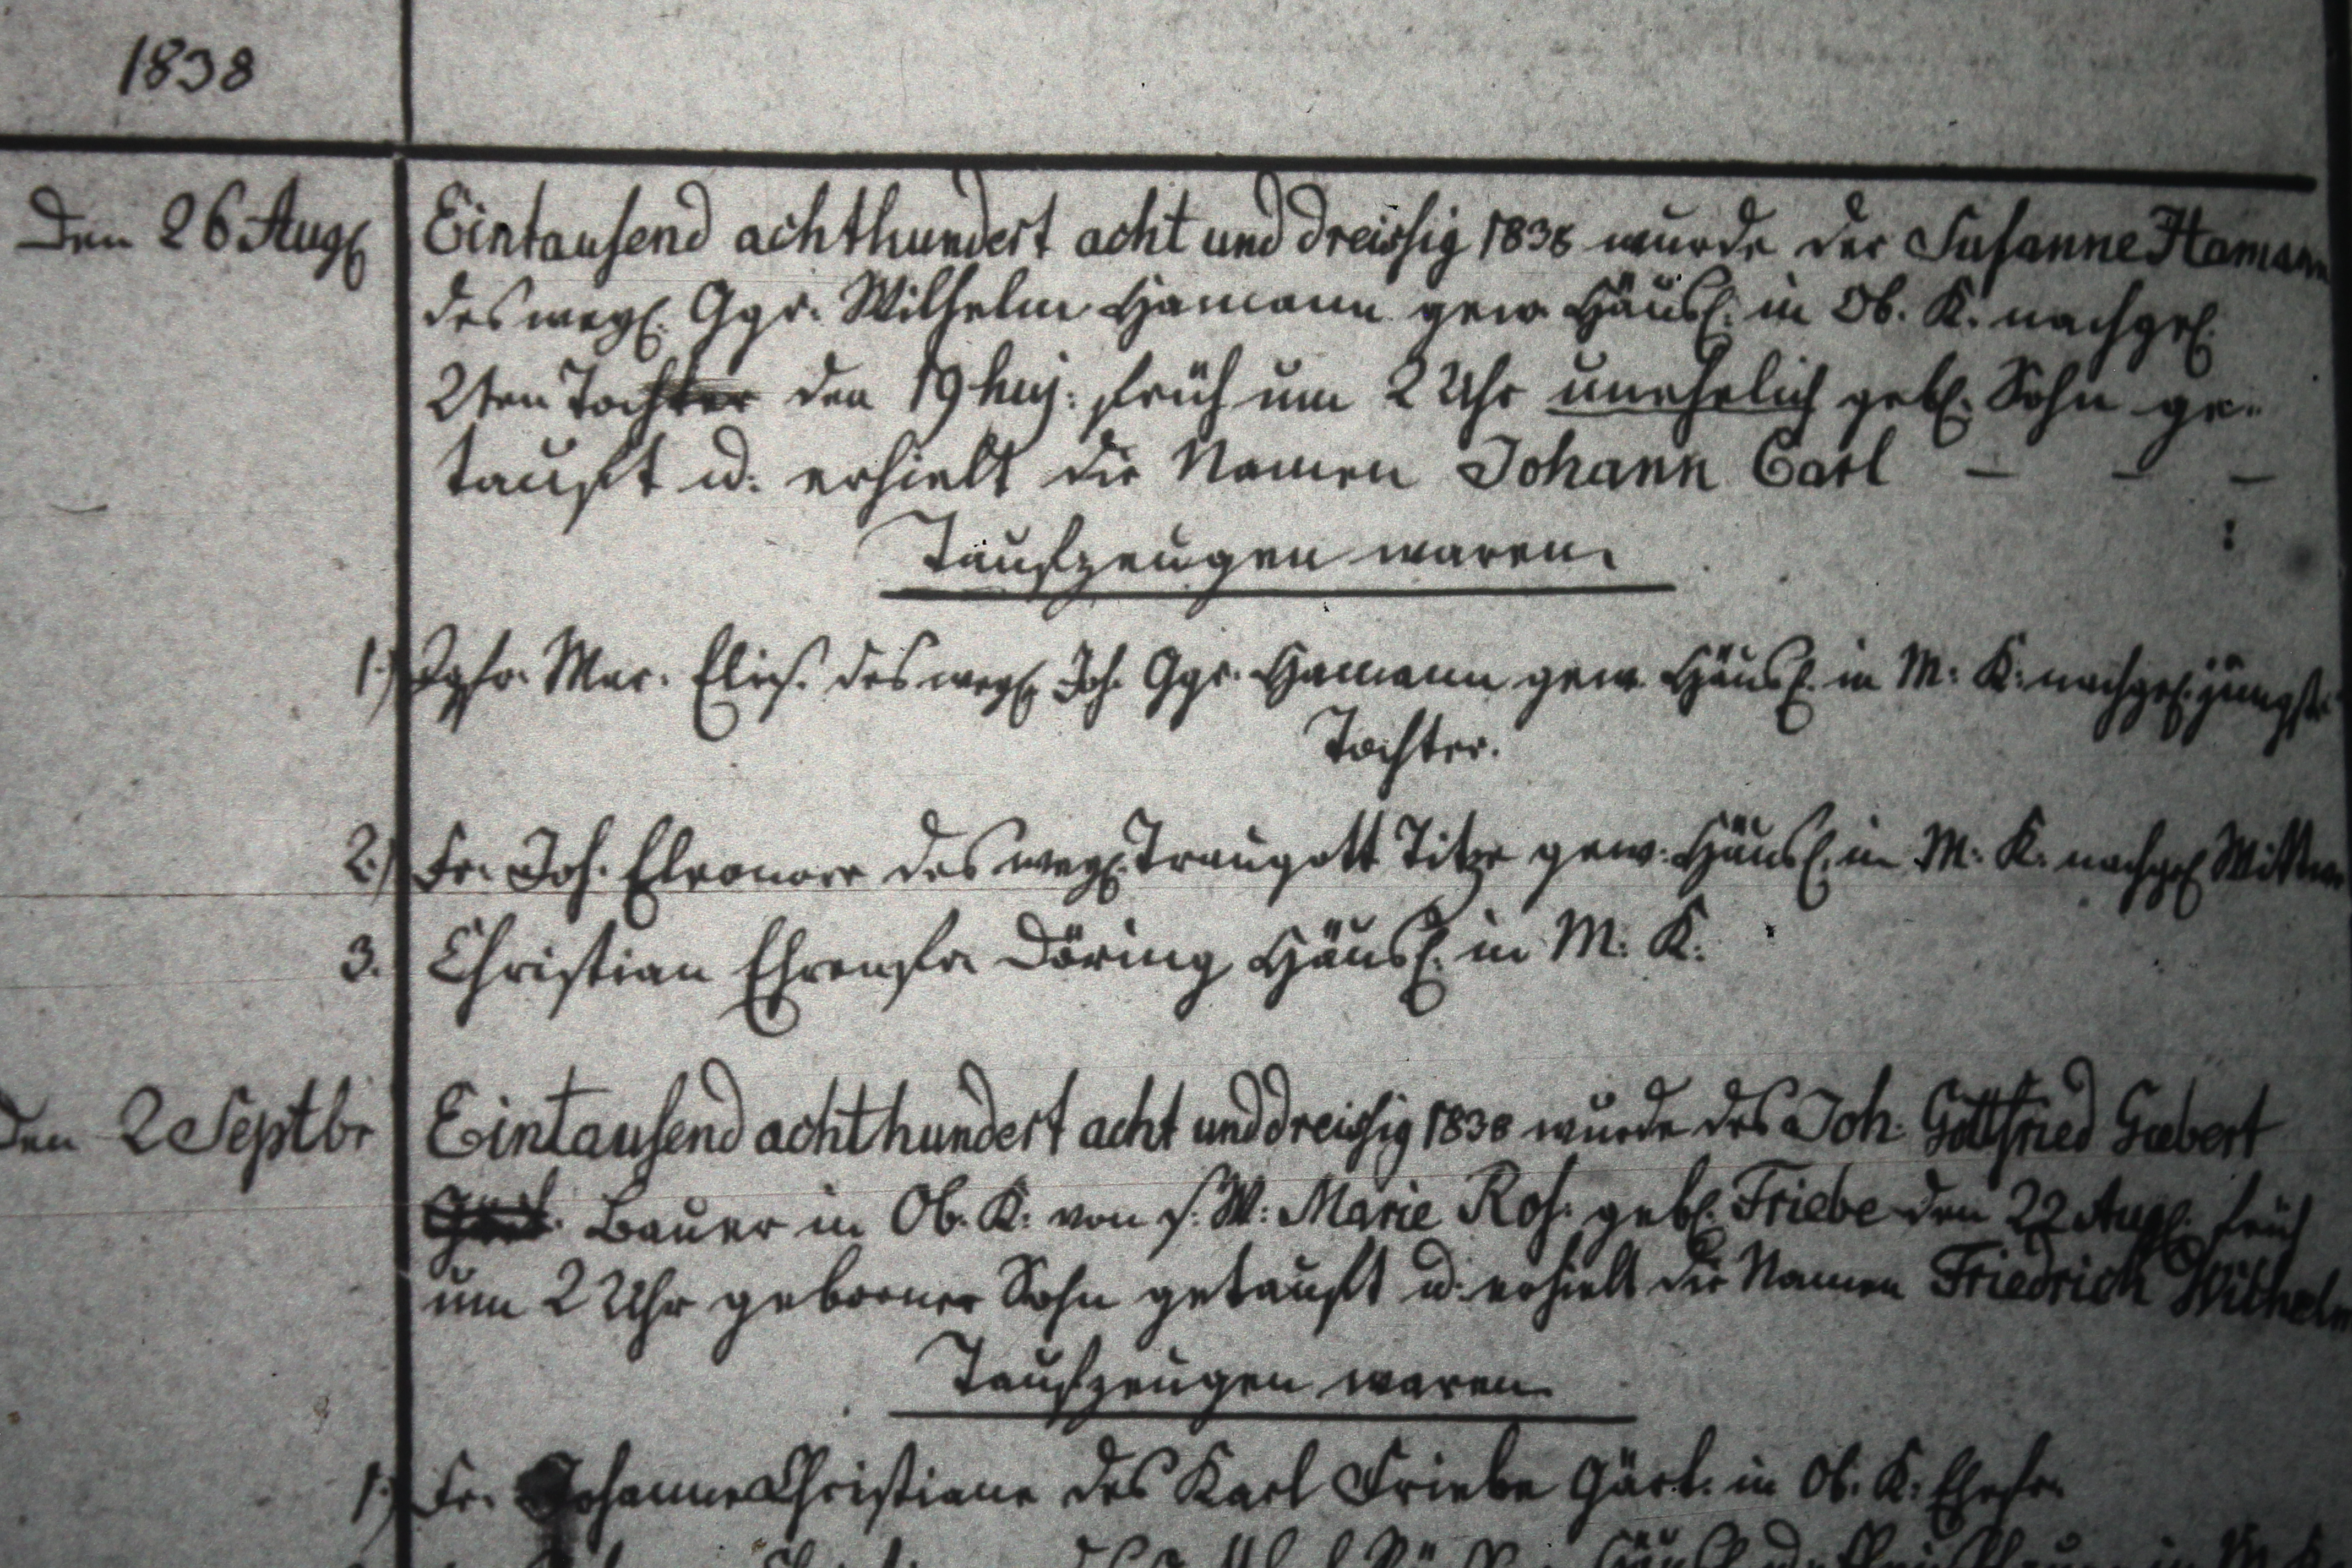 1838
Den 26 Aug. Eintausend achthundert acht und dreissig 1838 wurde der Susanne Hamann
des weyl. Ggr. Wilhelm Hamann gew. Häusl. in Ob. K. nachgel.
2ten Tochter den 19 huj: früh um 2 Uhr unehelich geb. Sohn ge-
tauft u: erhielt die Namen Johann Carl – – –
Taufzeugen waren.
1.) Jgfr. Mar. Elis. des weyl. Joh. Ggr. Hamann gew. Häusl. in M: K: nachgel. jüngste
Tochter.
2.) Fr. Joh. Eleonore des weyl. Traugott Titze gew. Häusl. in M: K: nachgel. Wittwe
3. Christian Ehrenfr. Döring Häusl. in M: K:
Den 2 Septbr Eintausend achthundert acht und dreissig 1838 wurde des Joh. Gottfried Gebert
Bauer in Ob. K: von s. W: Marie Ros: geb. Friebe den 22 Aug. früh
um 2 Uhr geborner Sohn getauft u: erhielt die Namen Friedrich Wilhelm
Taufzeugen waren
1.) Fr. Johanne Christiane des Karl Friebe Gärt. in Ob. K: Ehefr.